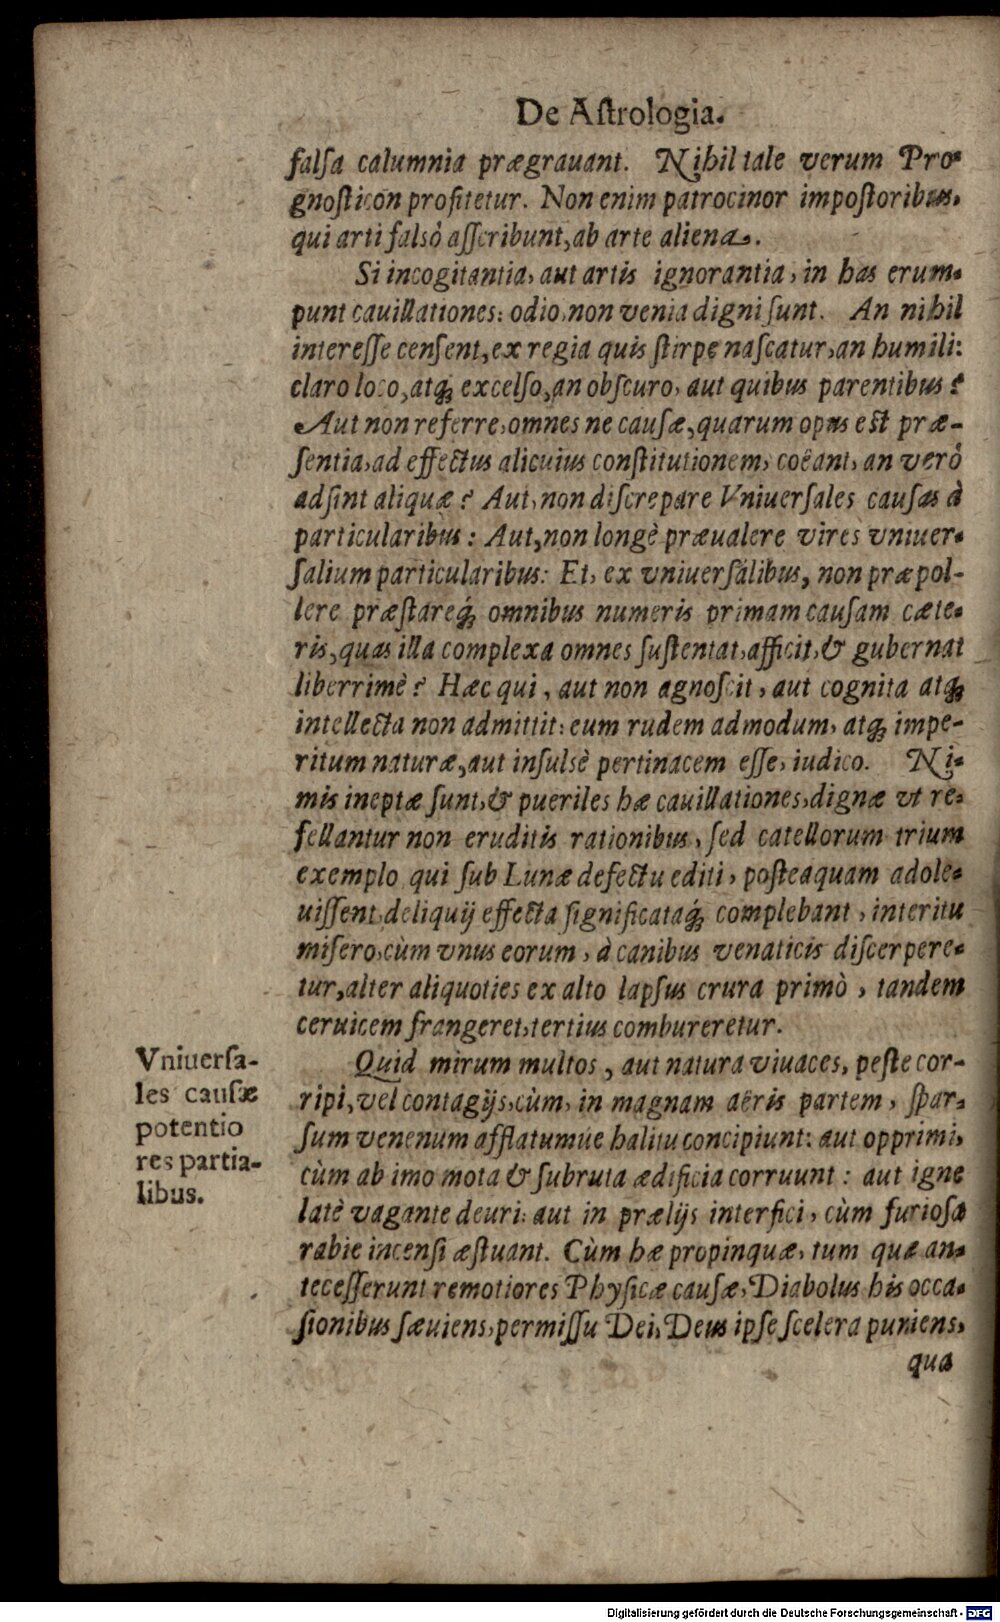 De Aſtrologia.
falſa calumnia prægrauant. Nihil tale verum Pro-
gnoſticon profitetur. Non enim patrocinor impoſtoribus,
qui arti falsò aſſcribunt, ab arte aliena.
Si incogitantia, aut artis ignorantia, in has erum-
punt cauillationes: odio, non venia digni ſunt. An nihil
intereſſe cenſent, ex regia quis ſtirpe naſcatur, an humili:
claro loco, atq́; excelſo, an obſcuro, aut quibus parentibus?
Aut non referre, omnes ne cauſæ, quarum opus eſt præ-
ſentia, ad effectus alicuius conſtitutionem, coëant, an verò
adſint aliquæ? Aut, non diſcrepare Vniuerſales cauſas à
particularibus: Aut, non longè præualere vires vniuer-
ſalium particularibus: Et, ex vniuerſalibus, non præpol-
lere præſtareq́; omnibus numeris primam cauſam cæte-
ris, quas illa complexa omnes ſuſtentat, afficit, & gubernat
liberrimè? Hæc qui, aut non agnoſcit, aut cognita atq́;
intellecta non admittit: eum rudem admodum, atq́; impe-
ritum naturæ, aut inſulsè pertinacem eſſe, iudico. Ni-
mis ineptæ ſunt, & pueriles hæ cauillationes, dignæ vt re-
fellantur non eruditis rationibus, ſed catellorum trium
exemplo qui ſub Lunæ defectu editi, poſteaquam adole-
uiſſent, deliquij effecta ſignificataq́; complebant, interitu
miſero, cùm vnus eorum, à canibus venaticis diſcerpere-
tur, alter aliquoties ex alto lapſus crura primò, tandem
ceruicem frangeret, tertius combureretur.
Quid mirum multos, aut natura viuaces, peſte cor-
ripi, vel contagijs, cùm, in magnam aëris partem, ſpar-
ſum venenum afflatumúe halitu concipiunt: aut opprimi,
cùm ab imo mota & ſubruta ædificia corruunt: aut igne
latè vagante deuri: aut in prælijs interfici, cùm furioſa
rabie incenſi æſtuant. Cùm hæ propinquæ, tum quæ an-
teceſſerunt remotiores Phyſicæ cauſæ, Diabolus his occa-
ſionibus ſæuiens, permiſſu Dei, Deus ipſe ſcelera puniens,
qua
Vniuerſa-
les cauſæ
potentio
res partia-
libus.
Digitalisierung gefördert durch die Deutsche Forschungsgemeinschaft - DFG